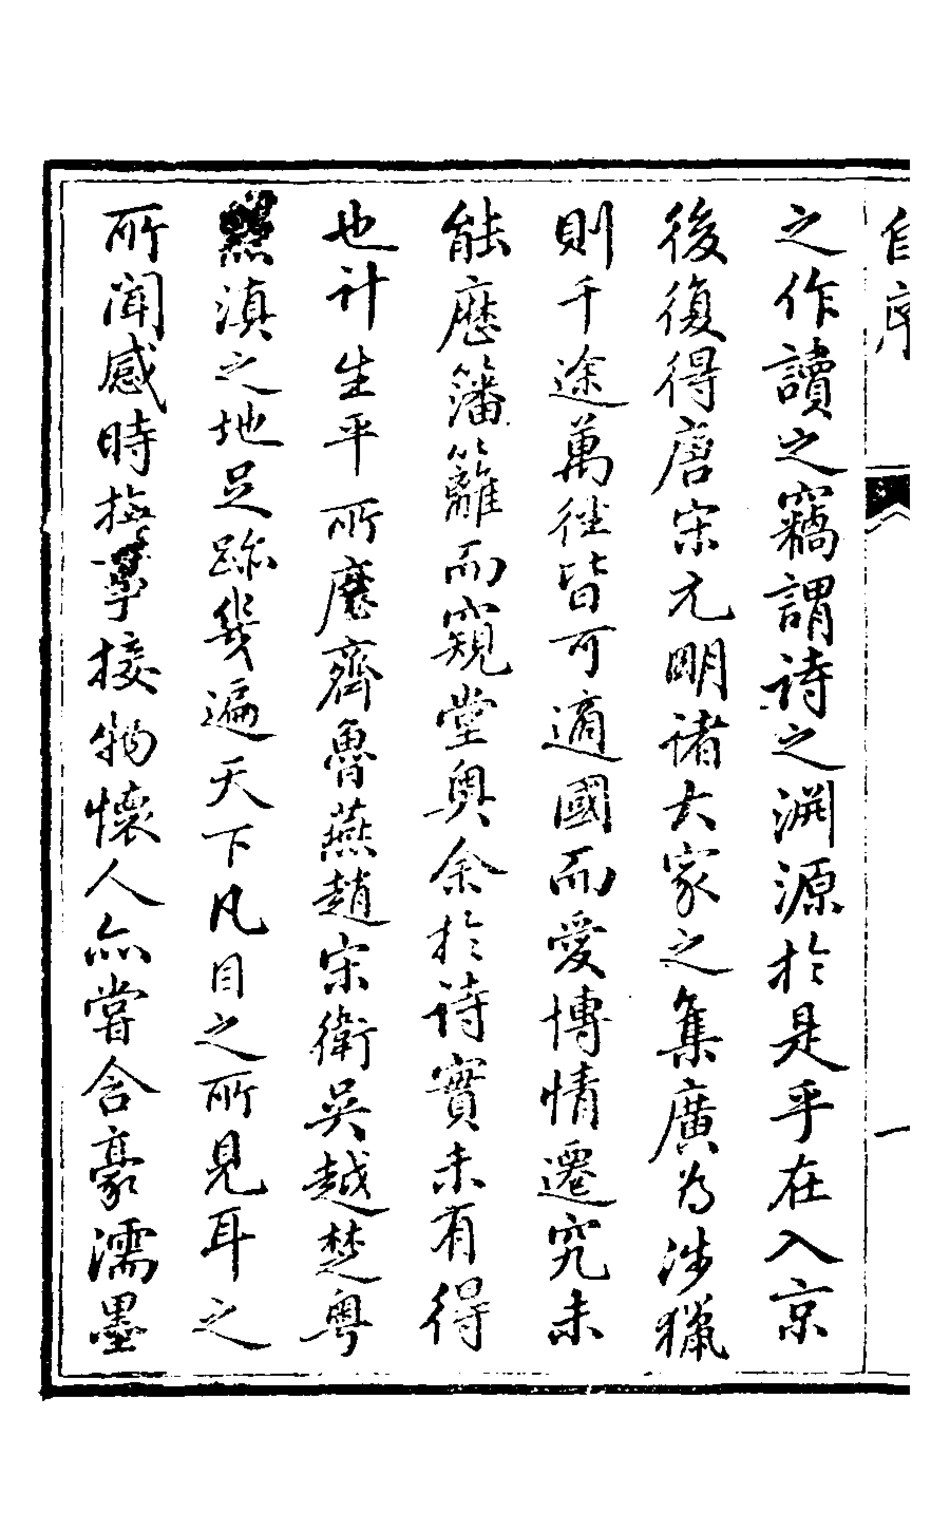 自序 一
之作讀之竊謂詩之淵源於是乎在入京
後復得唐宋元明諸大家之集廣為涉獵
則千途萬徑皆可適國而愛博情遷究未
能歷籓籬而窺堂奧余於詩實未有得
也計生平所歷齊魯燕趙宋衛吳越楚粵
黔滇之地足跡幾遍天下凡目之所見耳之
所聞感時撫事接物懷人亦嘗含豪濡墨